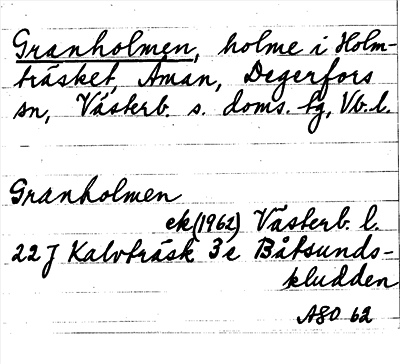 Granholmen, holme i Holm-
träsket, Åman, Degerfors
sn, Västerb. s. doms. tg, Vb. l.
Granholmen
ek (1962) Västerb. l.
22 J Kalvträsk 3 e Båtsunds-
kludden
ASO 62